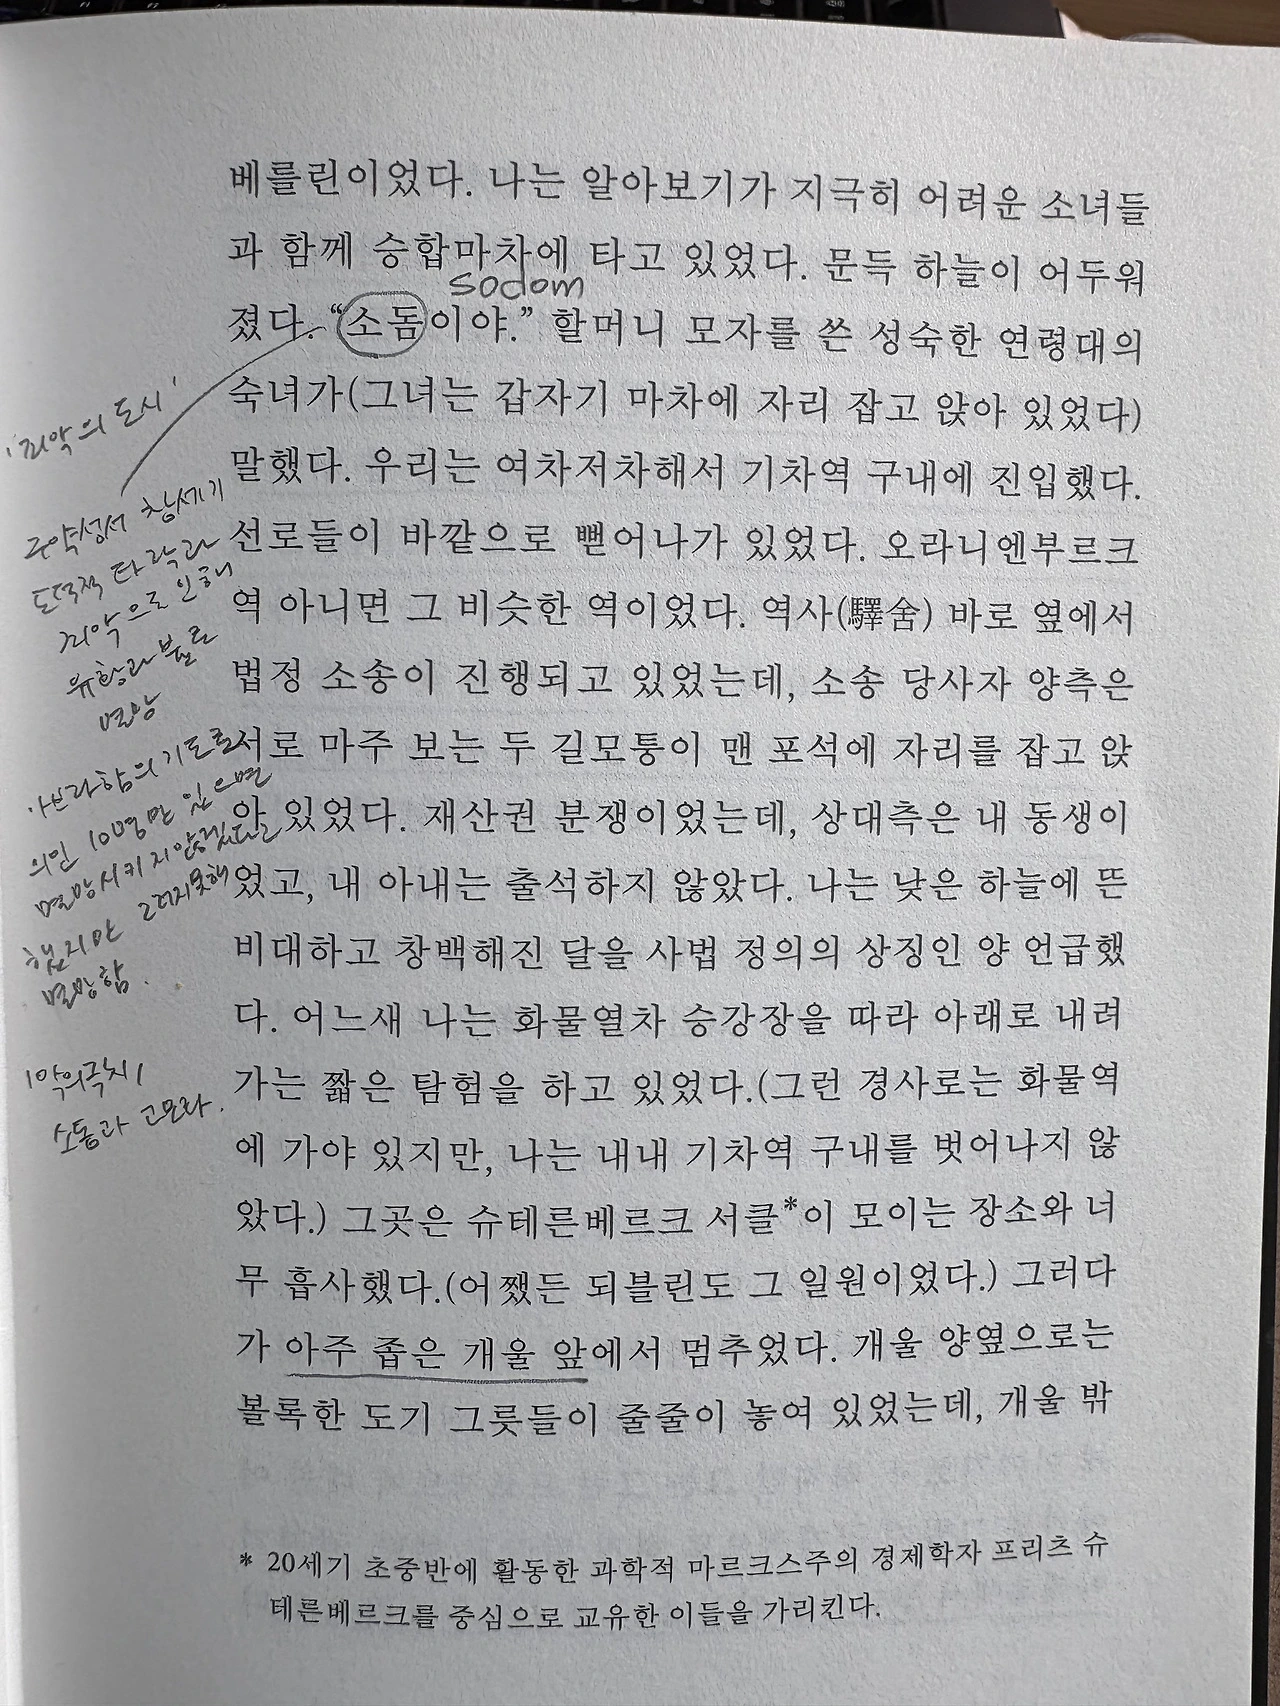 베를린이었다. 나는 알아보기가 지극히 어려운 소녀들
과 함께 승합마차에 타고 있었다. 문득 하늘이 어두워
sodom
졌다. “소돔이야.” 할머니 모자를 쓴 성숙한 연령대의
숙녀가(그녀는 갑자기 마차에 자리 잡고 앉아 있었다)
말했다. 우리는 여차저차해서 기차역 구내에 진입했다.
선로들이 바깥으로 뻗어나가 있었다. 오라니엔부르크
역 아니면 그 비슷한 역이었다. 역사(驛舍) 바로 옆에서
법정 소송이 진행되고 있었는데, 소송 당사자 양측은
서로 마주 보는 두 길모퉁이 맨 포석에 자리를 잡고 앉
아 있었다. 재산권 분쟁이었는데, 상대측은 내 동생이
었고, 내 아내는 출석하지 않았다. 나는 낮은 하늘에 뜬
비대하고 창백해진 달을 사법 정의의 상징인 양 언급했
다. 어느새 나는 화물열차 승강장을 따라 아래로 내려
가는 짧은 탐험을 하고 있었다.(그런 경사로는 화물역
에 가야 있지만, 나는 내내 기차역 구내를 벗어나지 않
았다.) 그곳은 슈테른베르크 서클*이 모이는 장소와 너
무 흡사했다.(어쨌든 되블린도 그 일원이었다.) 그러다
가 아주 좁은 개울 앞에서 멈추었다. 개울 양옆으로는
볼록한 도기 그릇들이 줄줄이 놓여 있었는데, 개울 밖
* 20세기 초중반에 활동한 과학적 마르크스주의 경제학자 프리츠 슈
테른베르크를 중심으로 교유한 이들을 가리킨다.
'죄악의 도시'
구약성서 창세기
도덕적 타락과
죄악으로 인해
유황과 불로
멸망
아브라함의 기도로
의인 10명만 있으면
멸망시키지 않겠다고
했지만 그러지 못해
멸망함.
'악의 극치'
소돔과 고모라.